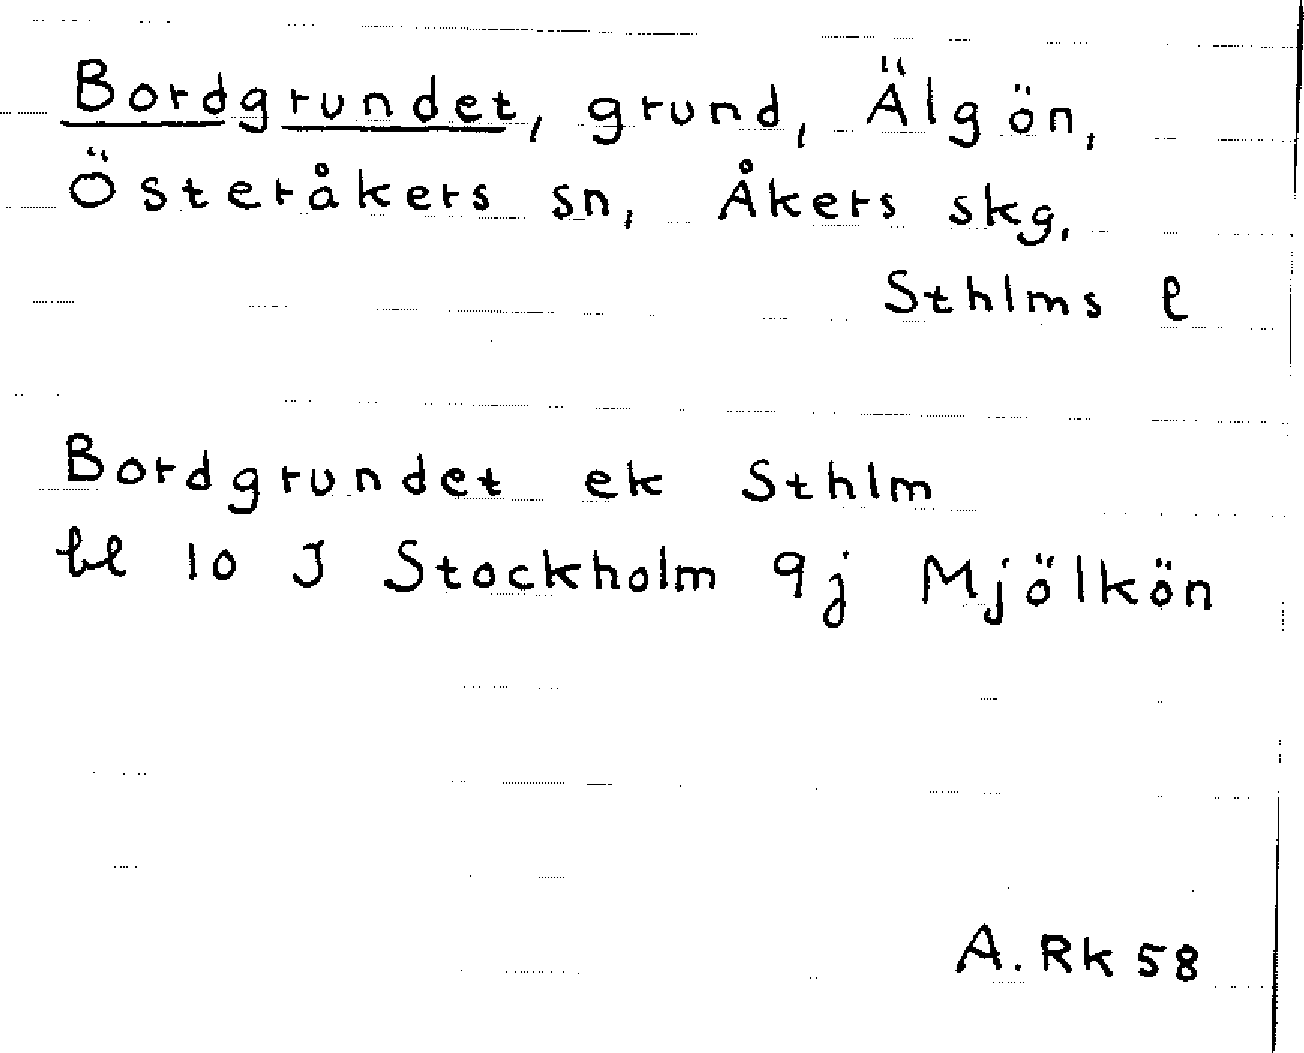 Bordgrundet, grund, Älgön,
Österåkers sn, Åkers skg,
Sthlms l
Bordgrundet ek Sthlm
bl 10 J Stockholm 9j Mjölkön
A. Rk 58